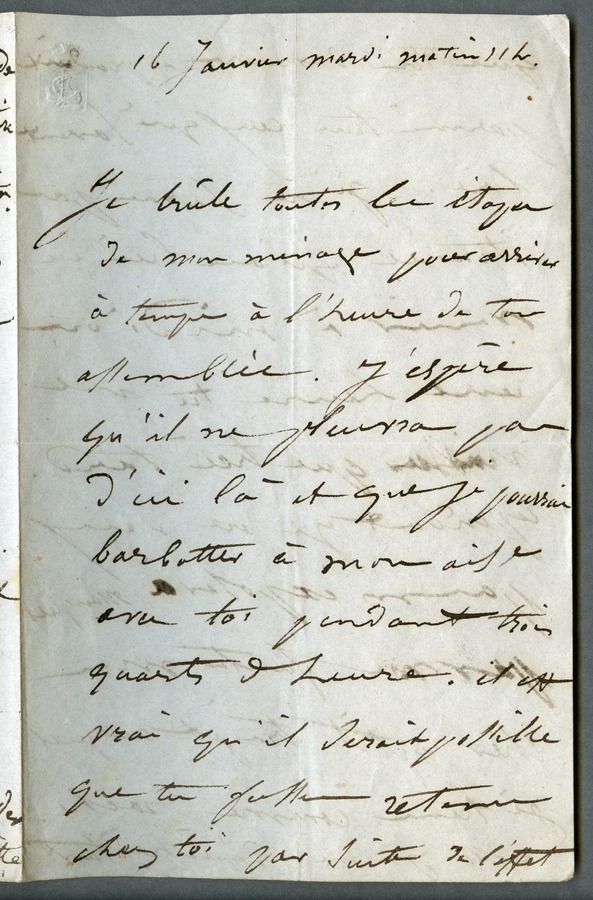 16 Janvier mardi matin 11h.
Je brûle toutes les étapes
de mon ménage pour arriver
à temps à l'heure de ton
assemblée. J'espère
qu'il ne pleuvra pas
d'ici là et que je pourrai
barbotter à mon aise
avec toi pendant trois
quarts d'heure. il est
vrai qu'il serait possible
que tu fusses retenu
chez toi par suite de l'effet